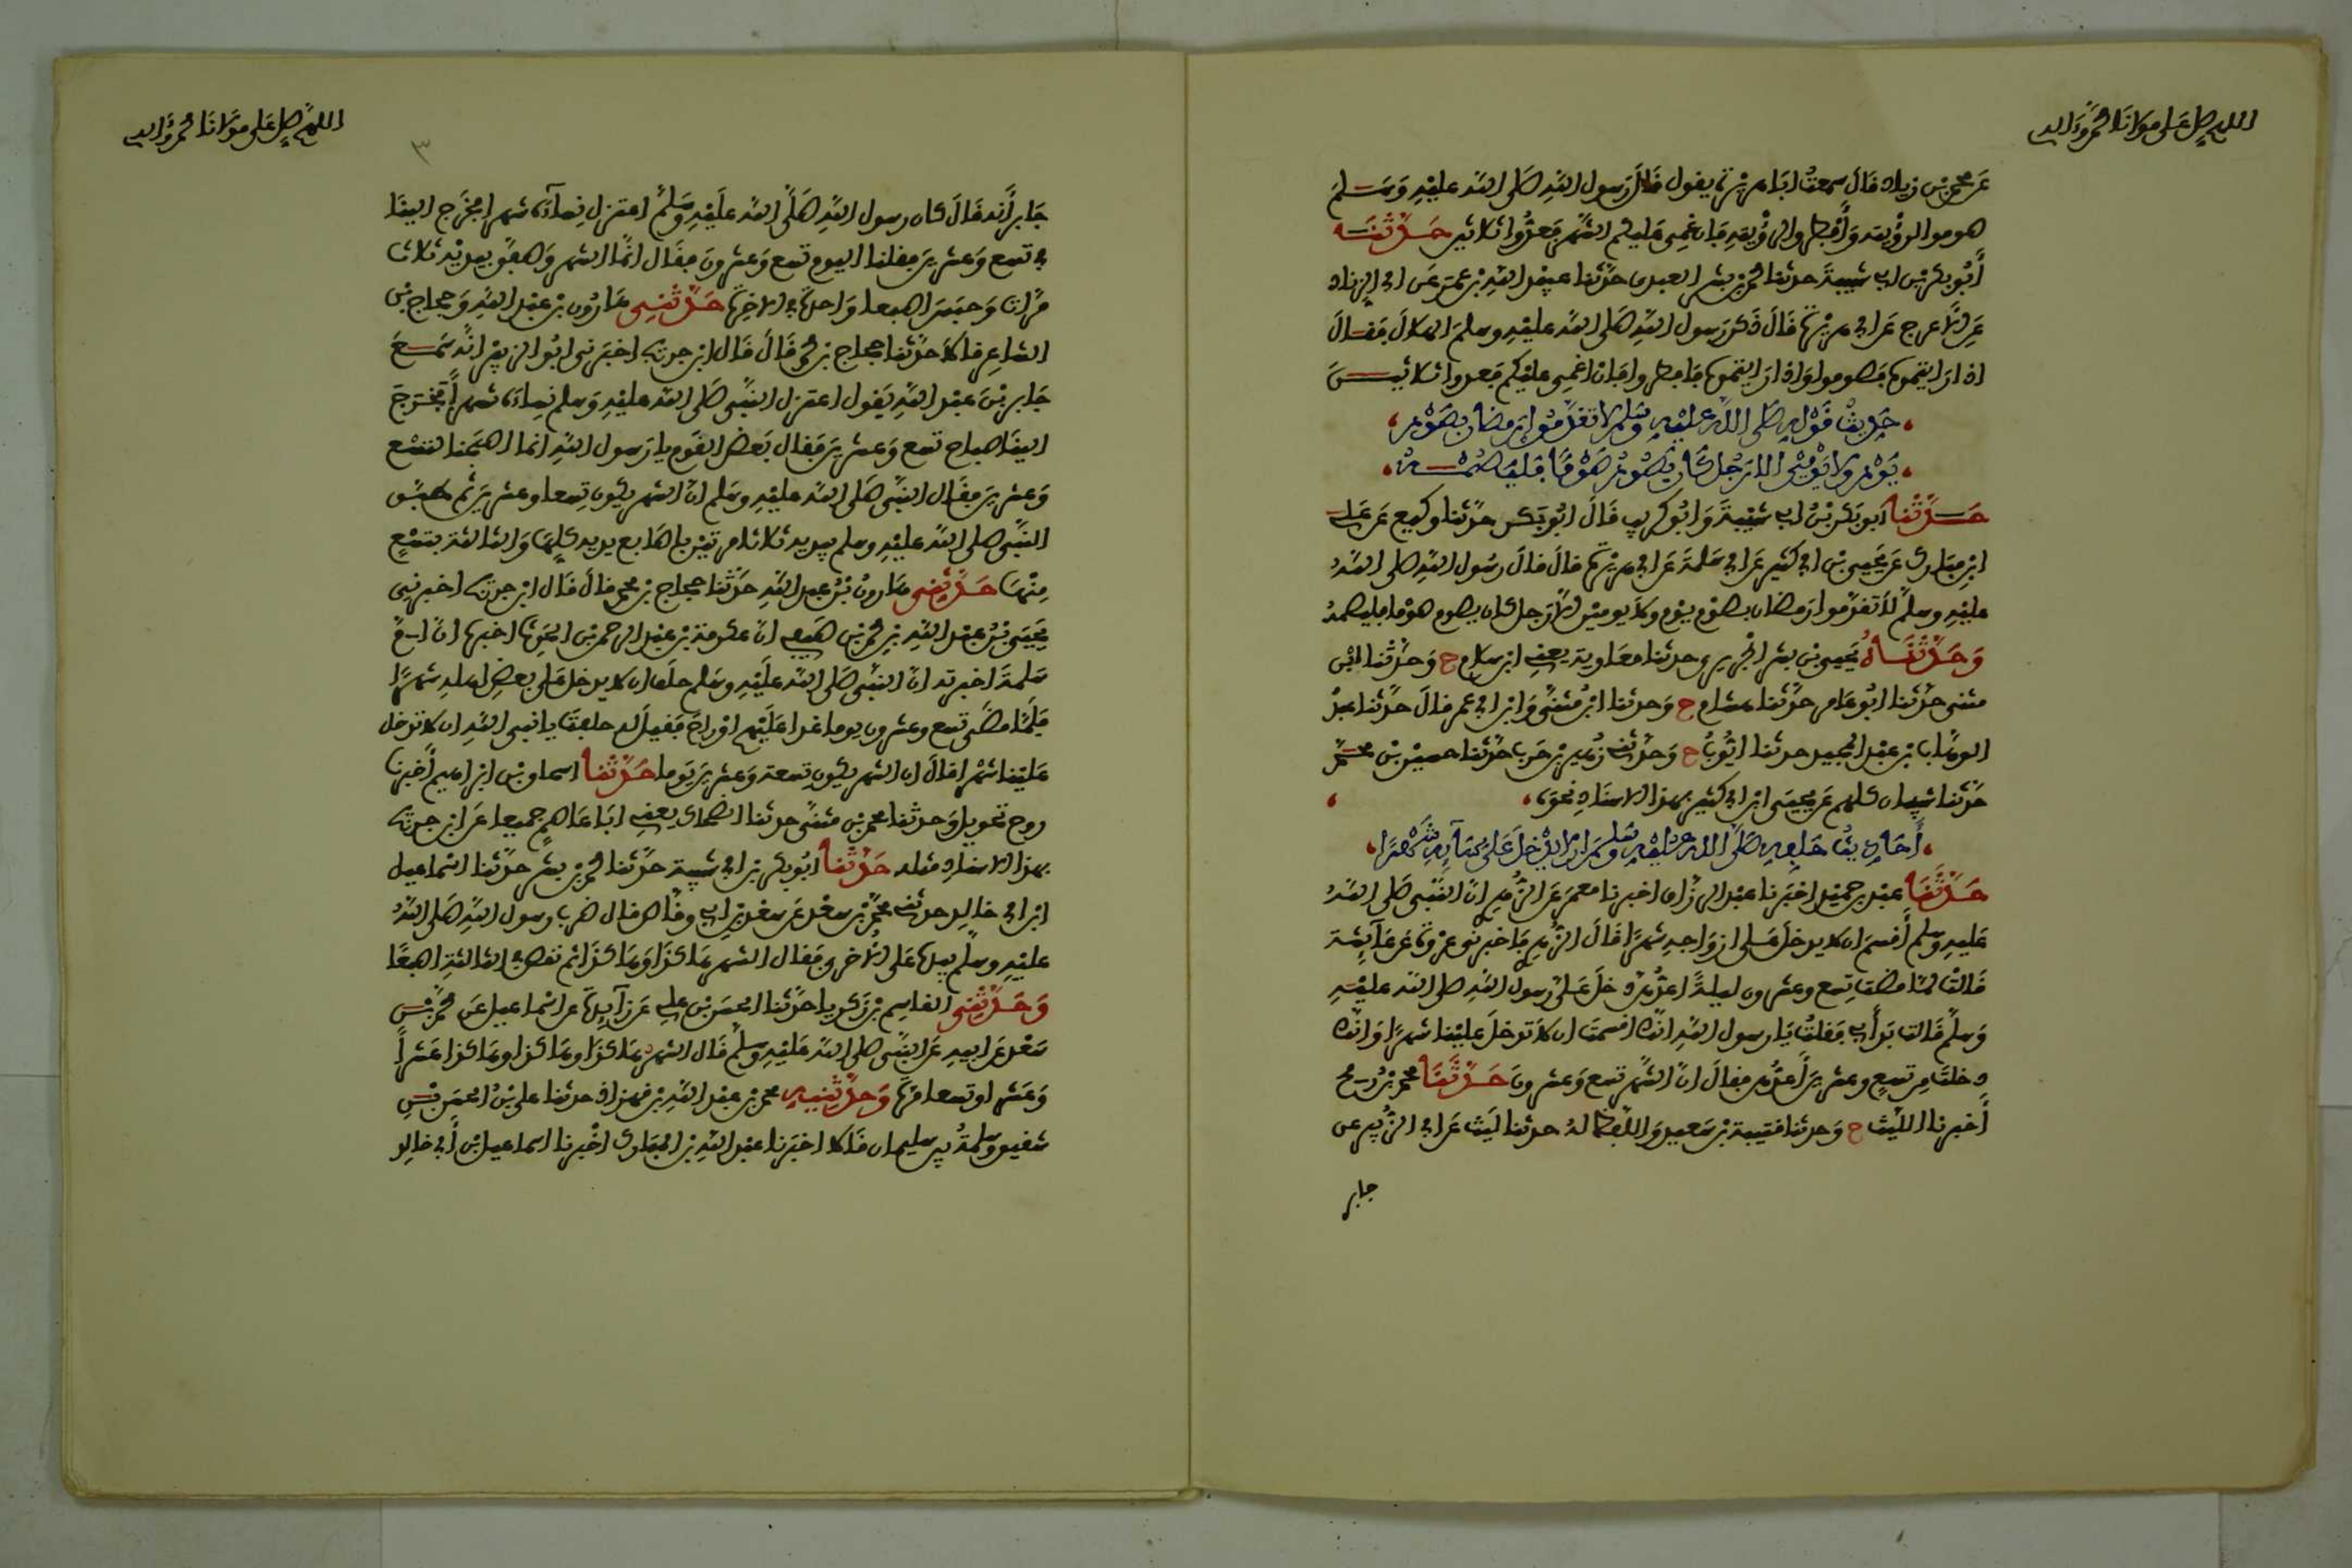 اللهم صل على مولانا محمد وءاله
عن محمد بن زياد قال سمعت ابا هريرة يقول قال رسول الله صلى الله عليه وسلم
صوموا لرؤيته وأفطروا لرؤيته فإن غمي عليكم الشهر فعدوا ثلاثين حدثنا
أبو بكر بن ابي شيبة حدثنا محمد بن بشر العبدي حدثنا عبيد الله بن عمر عن ابي الزناد
عن الأعرج عن ابي هريرة قال ذكر رسول الله صلى الله عليه وسلم الهلال فقال
اذا رايتموه فصوموا واذا رايتموه فافطروا فان اغمي عليكم فعدوا ثلاثين
حديث قوله صلى الله عليه وسلم لا تقدموا رمضان بصوم
يوم ولا يومين الا رجل كان يصوم صوما فليصمه
حدثنا أبو بكر بن ابي شيبة وابو كريب قال ابو بكر حدثنا وكيع عن علي
ابن مبارك عن يحيى بن ابي كثير عن ابي سلمة عن ابي هريرة قال قال رسول الله صلى الله
عليه وسلم لا تقدموا رمضان بصوم يوم ولا يومين الا رجل كان يصوم صوما فليصمه
وحدثناه يحيى بن بشر الحريري حدثنا معاوية يعني ابن سلام ح وحدثنا ابن
مثنى حدثنا ابو عامر حدثنا هشام ح وحدثنا ابن مثنى وابن ابي عمر قال حدثنا عبد
الوهاب بن عبد المجيد حدثنا ايوب ح وحدثني زهير بن حرب حدثنا حسين بن محمد
حدثنا شيبان كلهم عن يحيى ابن ابي كثير بهذا الاسناد نحوه
أحاديث حلفه صلى الله عليه وسلم ان لا يدخل على نسآئه شهرا
حدثنا عبد بن حميد اخبرنا عبد الرزاق اخبرنا معمر عن الزهري ان النبي صلى الله
عليه وسلم أقسم ان لا يدخل على ازواجه شهرا قال الزهري فاخبرني عروة عن عآيشة
قالت لما مضت تسع وعشرون ليلة اعدهن دخل علي رسول الله صلى الله عليه
وسلم قالت بدأ بي فقلت يا رسول الله انك اقسمت ان لا تدخل علينا شهرا وانك
دخلت من تسع وعشرين أعدهن فقال ان الشهر تسع وعشرون حدثنا محمد بن رمح
أخبرنا الليث ح وحدثنا قتيبة بن سعيد واللفظ له حدثنا ليث عن ابي الزبير عن
جابر
اللهم صل على مولانا محمد وءاله
٣
جابر أنه قال كان رسول الله صلى الله عليه وسلم اعتزل نسآءه شهرا فخرج الينا
في تسع وعشرين فقلنا اليوم تسع وعشرون فقال انما الشهر وصفق بيديه ثلاث
مرات وحبس اصبعا واحدة في الاخرة حدثني هارون بن عبد الله وحجاج بن
الشاعر قالا حدثنا حجاج بن محمد قال قال ابن جريج اخبرني ابو الزبير انه سمع
جابر بن عبد الله يقول اعتزل النبي صلى الله عليه وسلم نساءه شهرا فخرج
الينا صباح تسع وعشرين فقال بعض القوم يا رسول الله انما اصبحنا لتسع
وعشرين فقال النبي صلى الله عليه وسلم ان الشهر يكون تسعا وعشرين ثم طبق
النبي صلى الله عليه وسلم بيديه ثلاثا مرتين باصابع يديه كلها والثالثة بتسع
منها حدثني هارون بن عبد الله حدثنا حجاج بن محمد قال قال ابن جريج اخبرني
يحيى بن عبد الله بن محمد بن صيفي ان عكرمة بن عبد الرحمن بن الحرث اخبره ان ام
سلمة اخبرته ان النبي صلى الله عليه وسلم حلف ان لا يدخل على بعض اهله شهرا
فلما مضى تسع وعشرون يوما غدا عليهم او راح فقيل له حلفت يا نبي الله ان لا تدخل
علينا شهرا قال ان الشهر يكون تسعة وعشرين يوما حدثنا اسحاق بن ابراهيم أخبرنا
روح تحويل وحدثنا محمد بن مثنى حدثنا الضحاك يعني ابا عاصم جميعا عن ابن جريج
بهذا الاسناد مثله حدثنا ابو بكر بن ابي شيبة حدثنا محمد بن بشر حدثنا اسماعيل
ابن ابي خالد حدثني محمد بن سعد عن سعد بن ابي وقاص قال ضرب رسول الله صلى الله
عليه وسلم بيده على الاخرى فقال الشهر هاكذا وهاكذا ثم نقص في الثالثة اصبعا
وحدثني القاسم بن زكريا حدثنا الحسن بن علي عن زآيدة عن اسماعيل عن محمد بن
سعد عن ابيه عن النبي صلى الله عليه وسلم قال الشهر هاكذا وهاكذا وهاكذا عشرا
وعشرا وتسعا مرة وحدثنيه محمد بن عبد الله بن قهزاذ حدثنا علي بن الحسن بن
شقيق وسلمة بن سليمان قالا اخبرنا عبد الله بن المبارك اخبرنا اسماعيل بن أبي خالد